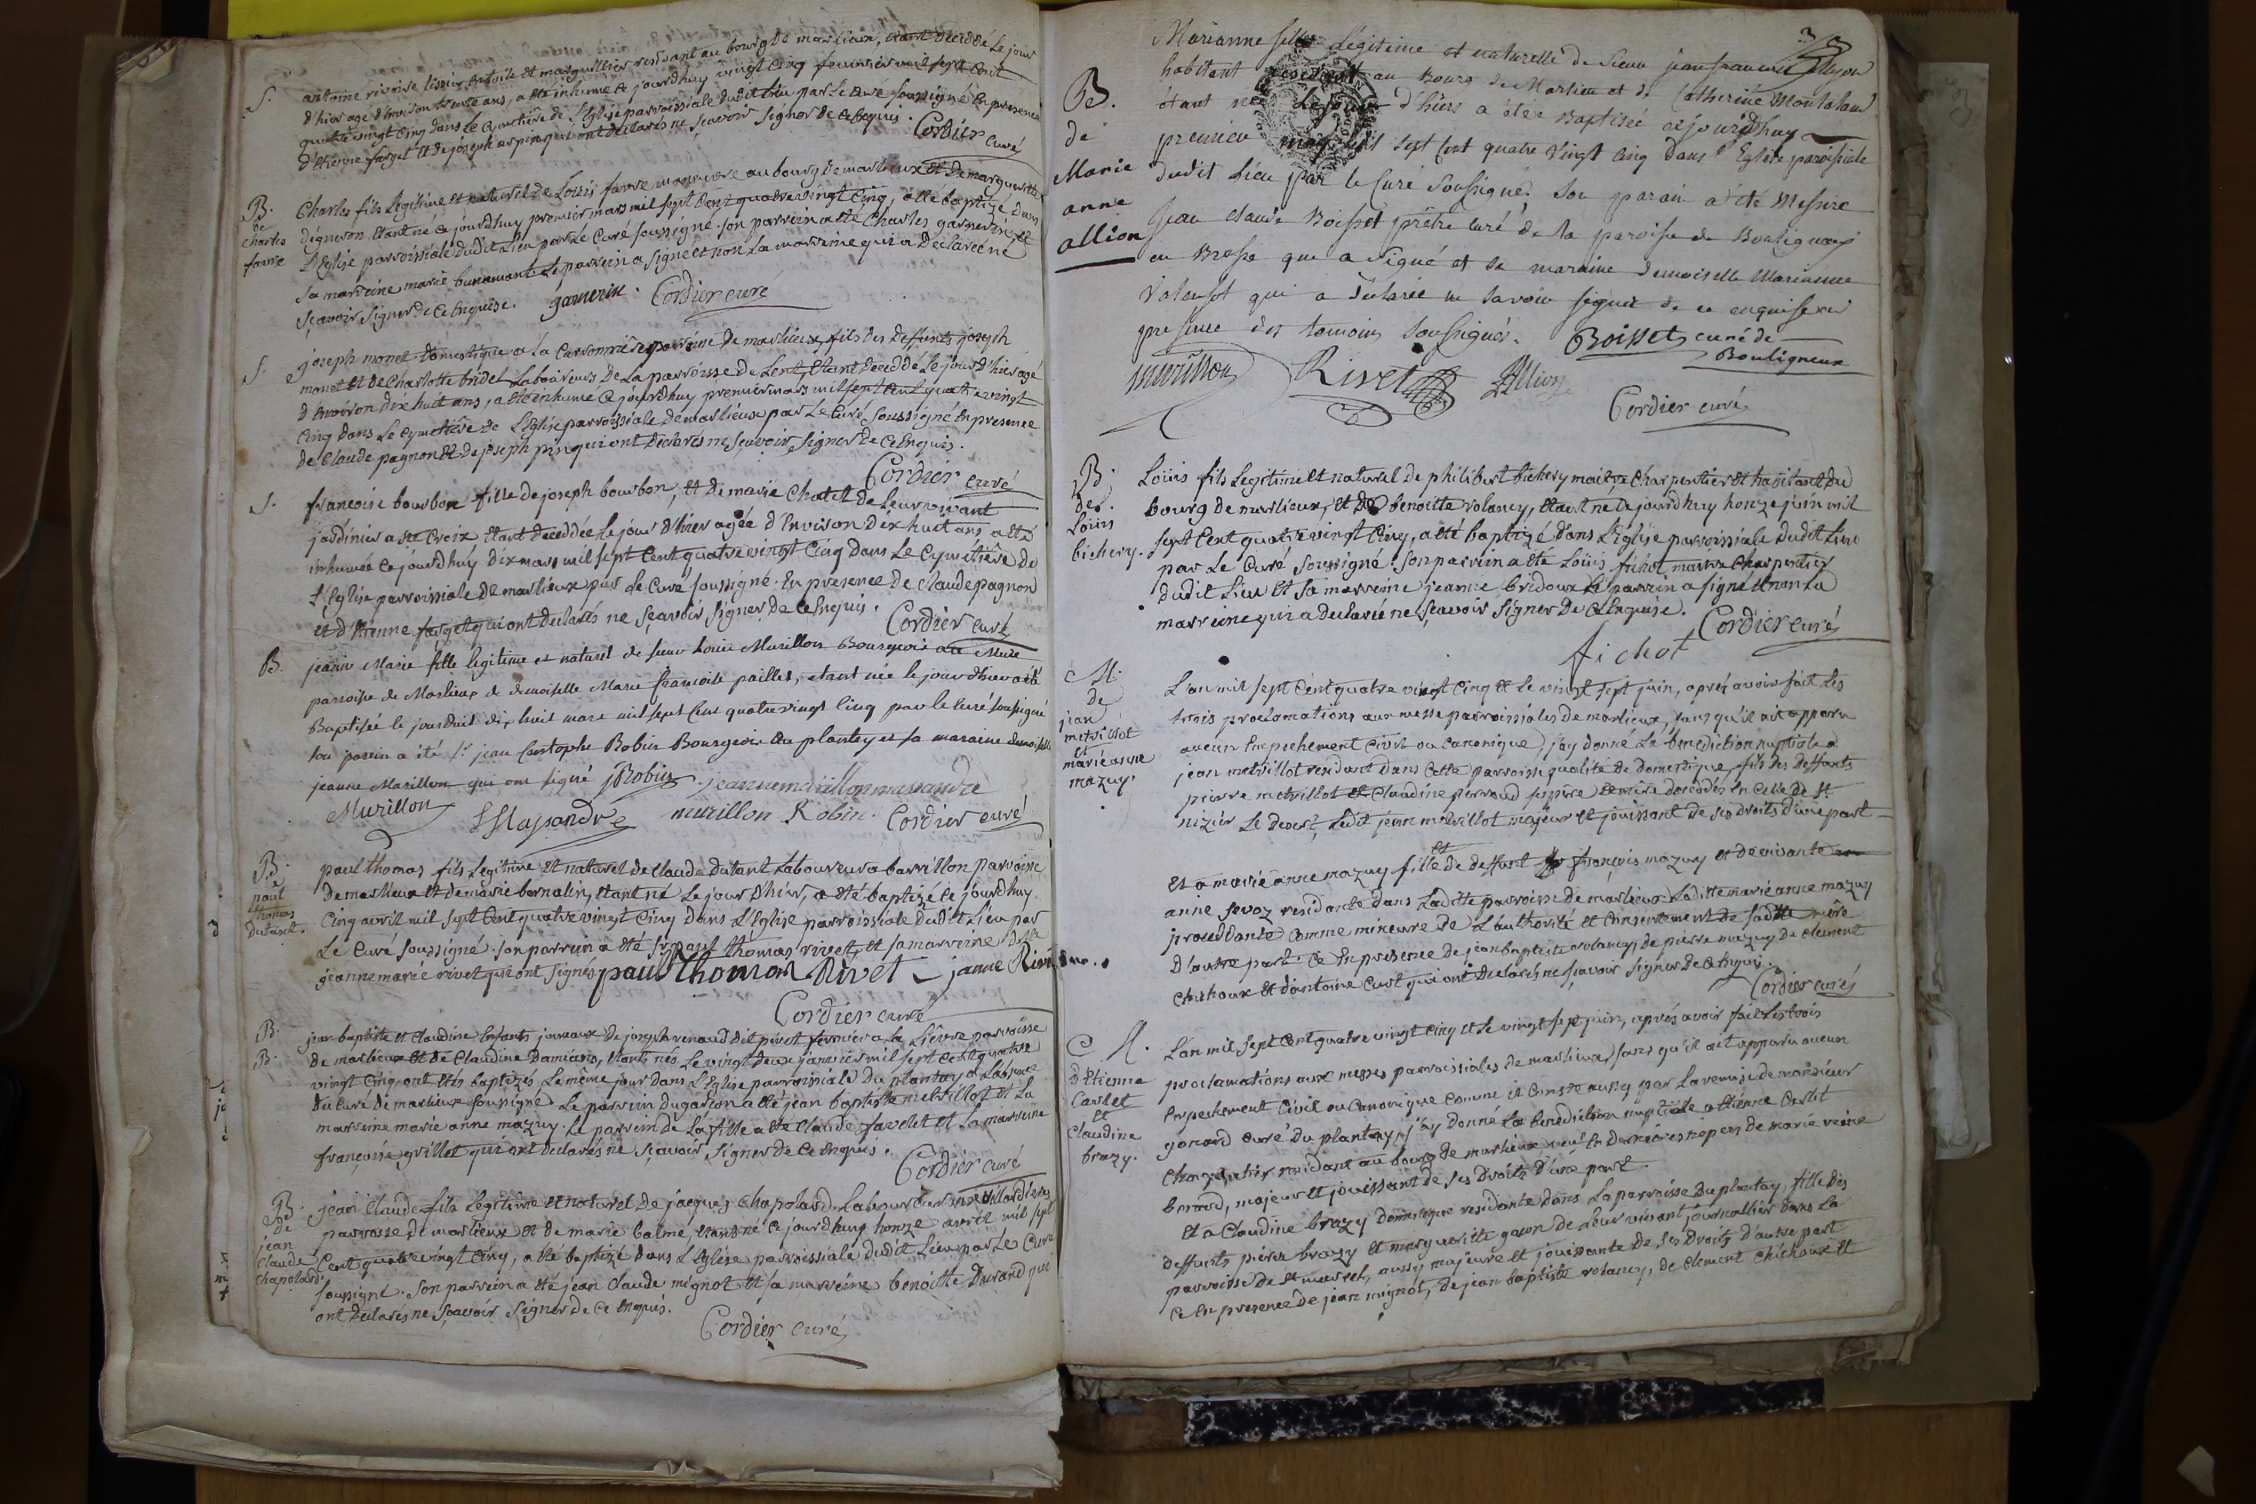 S.
antoine rivoire tisseur en toile et marguillier residant au bourg de marlieux, etant decedé le jour
d'hier agé d'environ trente ans, a eté inhumé ce jourdhuy vingt cinq fevrier mil sept cent
quatre vingt cinq dans le cymetiere de l'Eglise parroissiale dudit lieu par le curé soussigné En presence
d'Etienne farget et de joseph pin qui ont declarés ne sçavoir signer de ce Enquis. Cordier curé
B.
de
charles
favre
Charles fils legitime et naturel de Louis favre manœuvre au bourg de marlieux et de marguerite
digneron etant né ce jourdhuy premier mars mil sept cent quatre vingt cinq, a eté baptizé dans
l'Eglise parroissiale dudit lieu par le curé soussigné. son parrein a eté Charles garnerin, et
sa marreine marie bunamant. le parrein a signé et non la marreine qui a declaré ne
sçavoir signer de ce Enquise. garnerin. Cordier curé
S.
joseph monet domestique a la Carronniere parroisse de marlieux, fils des deffunts joseph
monet et de Charlotte bridet Laboureurs de la parroisse de Lent, etant decedé le jour d'hier agé
d'Environ dix huit ans, a eté inhumé ce jourdhuy premier mars mil sept cent quatre vingt
Cinq dans le cymetiere de l'Eglise parroissiale de marlieux par le curé soussigné En presence
de Claude pagnon et de joseph pin qui ont declarés ne sçavoir signer de ce Enquis.
Cordier curé
S.
francoise bourbon fille de joseph bourbon, et de marie Chatel de leur vivant
jardinier a Ste Croix etant decedée le jour d'hier agée d'Environ dix huit ans a eté
inhumée ce jourdhuy dix mars mil sept cent quatre vingt Cinq dans le cymetiêre de
l'Eglise parroissiale de marlieux par le curé soussigné. En presence de Claude pagnon
et d'Etienne farget qui ont declarés ne sçavoir signer de ce Enquis. Cordier curé
B.
jeanne Marie fille legitime et naturel de sieur Louis Murillon Bourgeois
paroisse de Marlieux et demoiselle Marie francoise paillet, etant née le jour d'hier a été
Baptisée le jourdhui dix huit mars mil sept cent quatre vingt Cinq par le curé soussigné
son parein a été Sr jean Christophe Robin Bourgeois au plantey et sa maraine demoiselle
jeanne Murillon qui ont signé JRobin jeanne murillon massandre
Murillon Massandre murillon Robin. Cordier curé
B.
de
paul
thomas
dutant.
paul thomas fils legitime et naturel de Claude dutant Laboureur a barvillon parroisse
de marlieux et de marie bernalin, etant né le jour d'hier, a eté baptizé ce jourdhuy
Cinq avril mil sept cent quatre vingt Cinq dans l'Eglise parroissiale dudit lieu par
le curé soussigné. son parrein a eté Sr paul thomas rivet, et sa marreine Dlle
jeanne marie rivet qui ont signés paul Thomas Rivet janne Rivet
Cordier curé
B.
B.
jean baptiste et Claudine Enfants jumeaux de joseph renaud dit pivet fermier a la Lievre parroisse
de marlieux et de Claudine Damians, etants nés le vingt deux janvier mil sept cent quatre
vingt cinq, ont etés baptizés le même jour dans l'Eglise parroissiale du plantay a l'absence
du curé de marlieux soussigné. Le parrein du garçon a eté jean baptiste metrillot et la
marreine marie anne mazuy. Le parrein de la fille a eté Claude favelet et la marreine
françoise grillet qui ont declarés ne sçavoir signer de ce Enquis. Cordier curé
B.
de
jean
Claude
Chapolard.
jean Claude fils legitime et naturel de jacques Chapolard Laboureur aux villardieres
parroisse de marlieux et de marie balme, etant né ce jourdhuy honze avril mil sept
Cent quatre vingt Cinq, a eté baptizé dans l'Eglise parroissiale dudit lieu par le curé
soussigné. Son parrein a été jean Claude mignot et sa marreine benoitte Durand qui
ont declarés ne sçavoir signer de ce enquis.
Cordier curé
33
B.
de
Marie
anne
allion
Marianne fille Légitime et naturelle de sieur jean francois allion
habitant residant au Bourg de Marlieu et de Catherine Montaland
étant née le jour d'hiers a étée Baptisée cejourdhuy
premier may mil sept Cent quatre vingt cinq dans l'Eglise paroissiale
dudit Lieu par le Curé soussigné, son parain a été Messire
Jean claude Boisset prêtre curé de la paroisse de Bouligneux
en Bresse qui a signé et sa maraine demoiselle Marianne
Valensot qui a déclarée ne savoir signer de ce enquise en
presence des temoins soussignés. Boisset curé de
Bouligneux
murillon Rivet Allion
Cordier curé
B.
de
Loüis
bichery.
Loüis fils legitime et naturel de philibert bichery maitre Charpentier et habitant du
bourg de marlieux, et de benoitte volancy, etant né ce jourdhuy honze juin mil
sept Cent quatre vingt Cinq, a eté baptizé dans l'Eglise parroissiale dudit Lieu
par le Curé soussigné. son parrein a eté Loüis fichot maitre Charpentier
dudit Lieu et sa marreine jeanne bridoux le parrein a signé et non la
marreine qui a declaré ne sçavoir signer de ce Enquise. Cordier curé
fichot
M.
de
jean
metrillot
et
marie anne
mazuy.
L'an mil sept Cent quatre vingt Cinq et le vingt sept juin, après avoir fait les
trois proclamations aux messes parroissiales de marlieux, sans qu'il ait apparu
aucun Empechement Civil ou Canonique, j'ay donné la benediction nuptiale a
jean metrillot residant dans cette parroisse qualité de domestique, fils des deffunts
pierre metrillot et Claudine perroud decedés en Celle de St
nizier le desert, ledit jean metrillot majeur et jouissant de ses droits d'une part
Et a marie anne mazuy fille de deffunt françois mazuy et de vivante
anne sevoz residante dans ladite parroisse de marlieux. Ladite marie anne mazuy
procedante Comme mineure de L'authorité et Consentement de sadite mère
d'autre part. Ce En presence de jean baptiste volancy, de pierre mazuy de clement
Chichoux et d'antoine Curt qui ont declarés ne sçavoir signer de ce Enquis.
Cordier curé
M.
d'Etienne
Carlet
et
Claudine
brazy.
L'an mil sept Cent quatre vingt Cinq et le vingt sept juin, après avoir fait les trois
proclamations aux messes parroissiales de marlieux, sans qu'il ait apparu aucun
Empechement Civil ou Canonique Comme il Conste aussy par la remise de monsieur
gonard curé du plantay, j'ay donné la benediction nuptiale a Etienne Carlet
Charpentier residant au bourg de marlieux veuf En dernieres nopces de marie reine
brevard, majeur et jouissant de ses droits d'une part.
Et a Claudine brazy domestique residante dans la parroisse du plantay, fille des
deffunts pierre brazy et marguerite gacon de leur vivant journallier dans la
parroisse de St marcel, aussy majeure et jouissante de ses droits d'autre part
Ce En presence de jean mignot, de jean baptiste volancy, de Clement Chichoux et